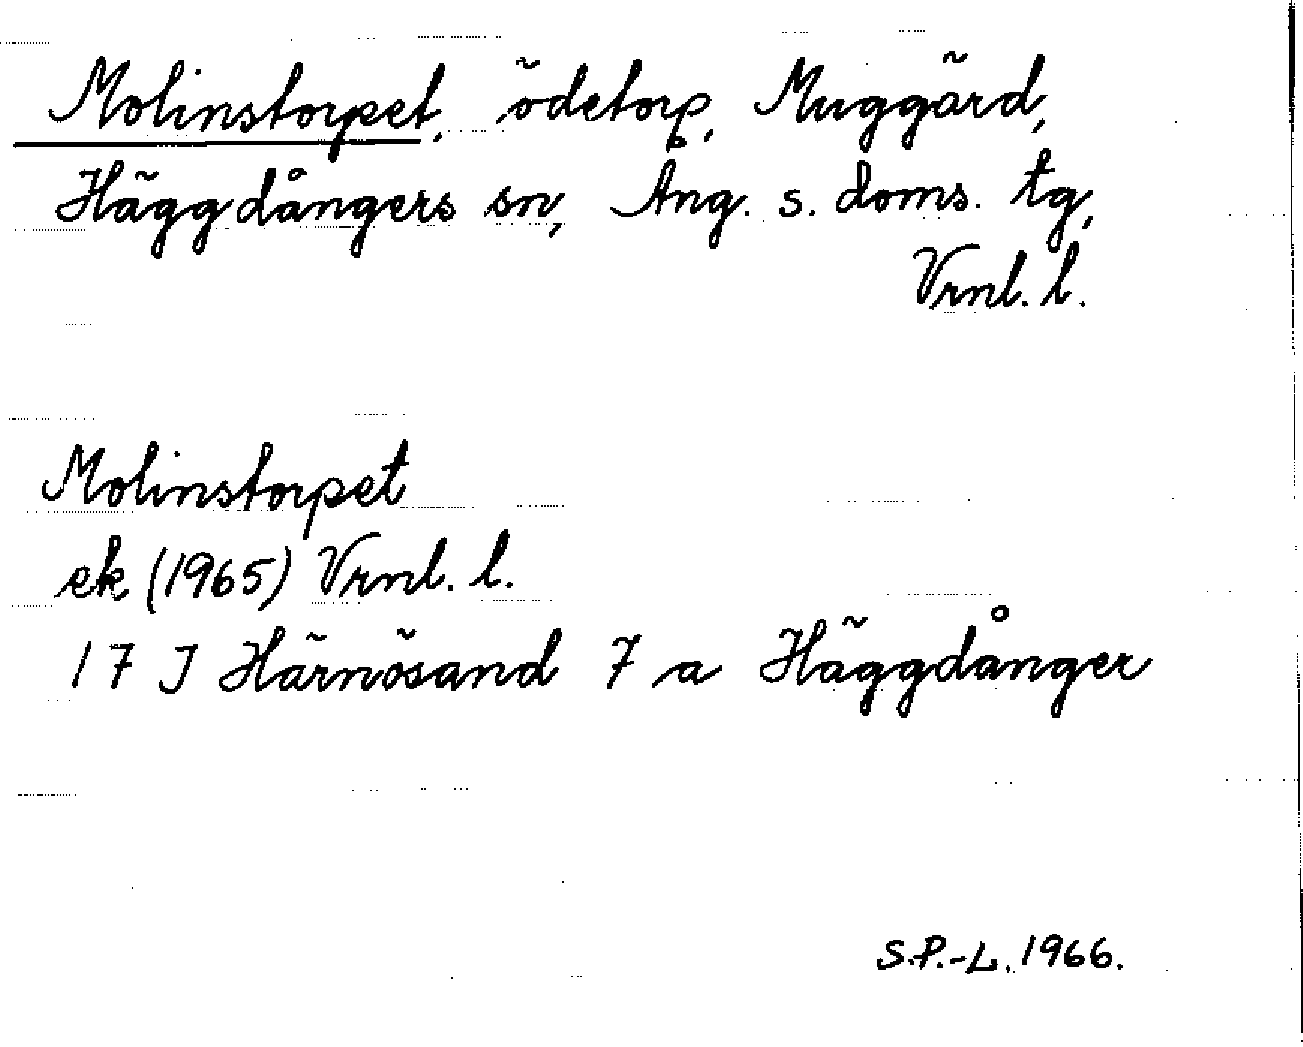 Molinstorpet, ödetorp, Muggärd,
Häggdångers sn, Ång. s. doms. tg,
Vrnl. l.
Molinstorpet
ek (1965) Vrnl. l.
17 J Härnösand 7 a Häggdånger
S.P.-L. 1966.